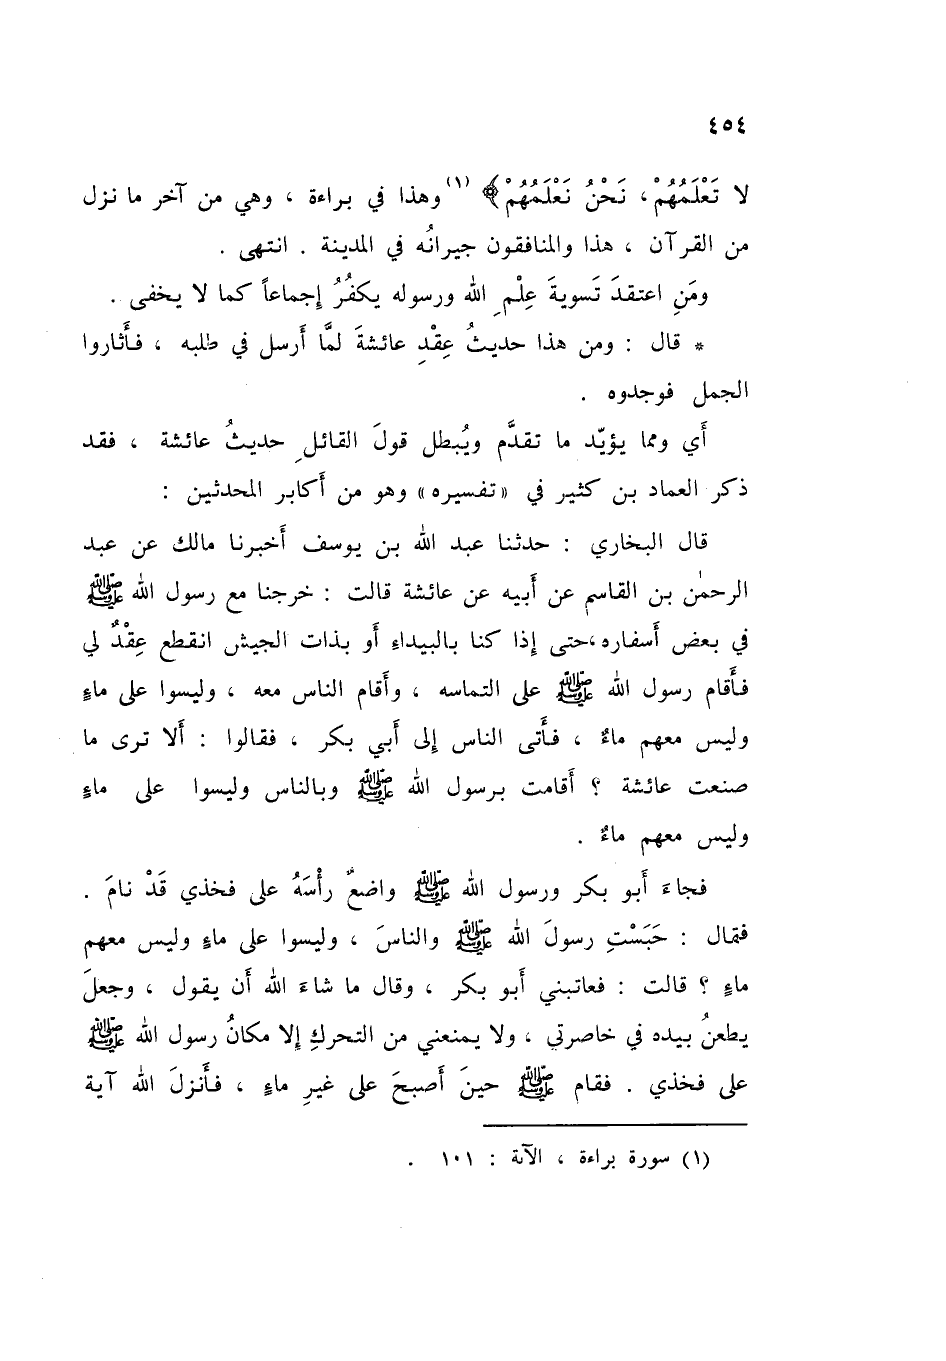 ٤٥٤
لا تَعْلَمُهُمْ، نَحْنُ نَعْلَمُهُمْ﴾ (١) وهذا في براءة ، وهي من آخر ما نزل
من القرآن ، هذا والمنافقون جيرانُه في المدينة . انتهى .
ومَنِ اعتقدَ تَسويةَ عِلْمِ الله ورسوله يكفُرُ إجماعاً كما لا يخفى .
* قال : ومن هذا حديثُ عِقْدِ عائشةَ لمَّا أرسل في طلبه ، فأَثاروا
الجمل فوجدوه .
أي ومما يؤيّد ما تقدَّم ويُبطل قولَ القائلِ حديثُ عائشة ، فقد
ذكر العماد بن كثير في «تفسيره» وهو من أكابر المحدثين :
قال البخاري : حدثنا عبد الله بن يوسف أخبرنا مالك عن عبد
الرحمٰن بن القاسم عن أبيه عن عائشة قالت : خرجنا مع رسول الله ﷺ
في بعض أسفاره، حتى إذا كنا بالبيداءِ أو بذات الجيش انقطع عِقْدٌ لي
فأَقام رسول الله ﷺ على التماسه ، وأَقام الناس معه ، وليسوا على ماءٍ
وليس معهم ماءٌ ، فأَتى الناس إلى أبي بكر ، فقالوا : أَلا ترى ما
صنعت عائشة ؟ أَقامت برسول الله ﷺ وبالناس وليسوا على ماءٍ
وليس معهم ماءٌ .
فجاءَ أَبو بكر ورسول الله ﷺ واضعٌ رأْسَهُ على فخذي قَدْ نامَ .
فقال : حَبَسْتِ رسولَ الله ﷺ والناسَ ، وليسوا على ماءٍ وليس معهم
ماءٍ ؟ قالت : فعاتبني أَبو بكر ، وقال ما شاءَ الله أَن يقول ، وجعلَ
يطعنُ بيده في خاصرتي ، ولا يمنعني من التحركِ إلا مكانُ رسول الله ﷺ
على فخذي . فقام ﷺ حينَ أَصبحَ على غيرِ ماءٍ ، فأَنزلَ الله آية
(١) سورة براءة ، الآية : ١٠١ .